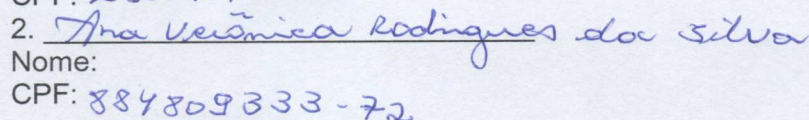 CPF:
2. Ana Verônica Rodrigues da Silva
Nome:
CPF: 884809333-72